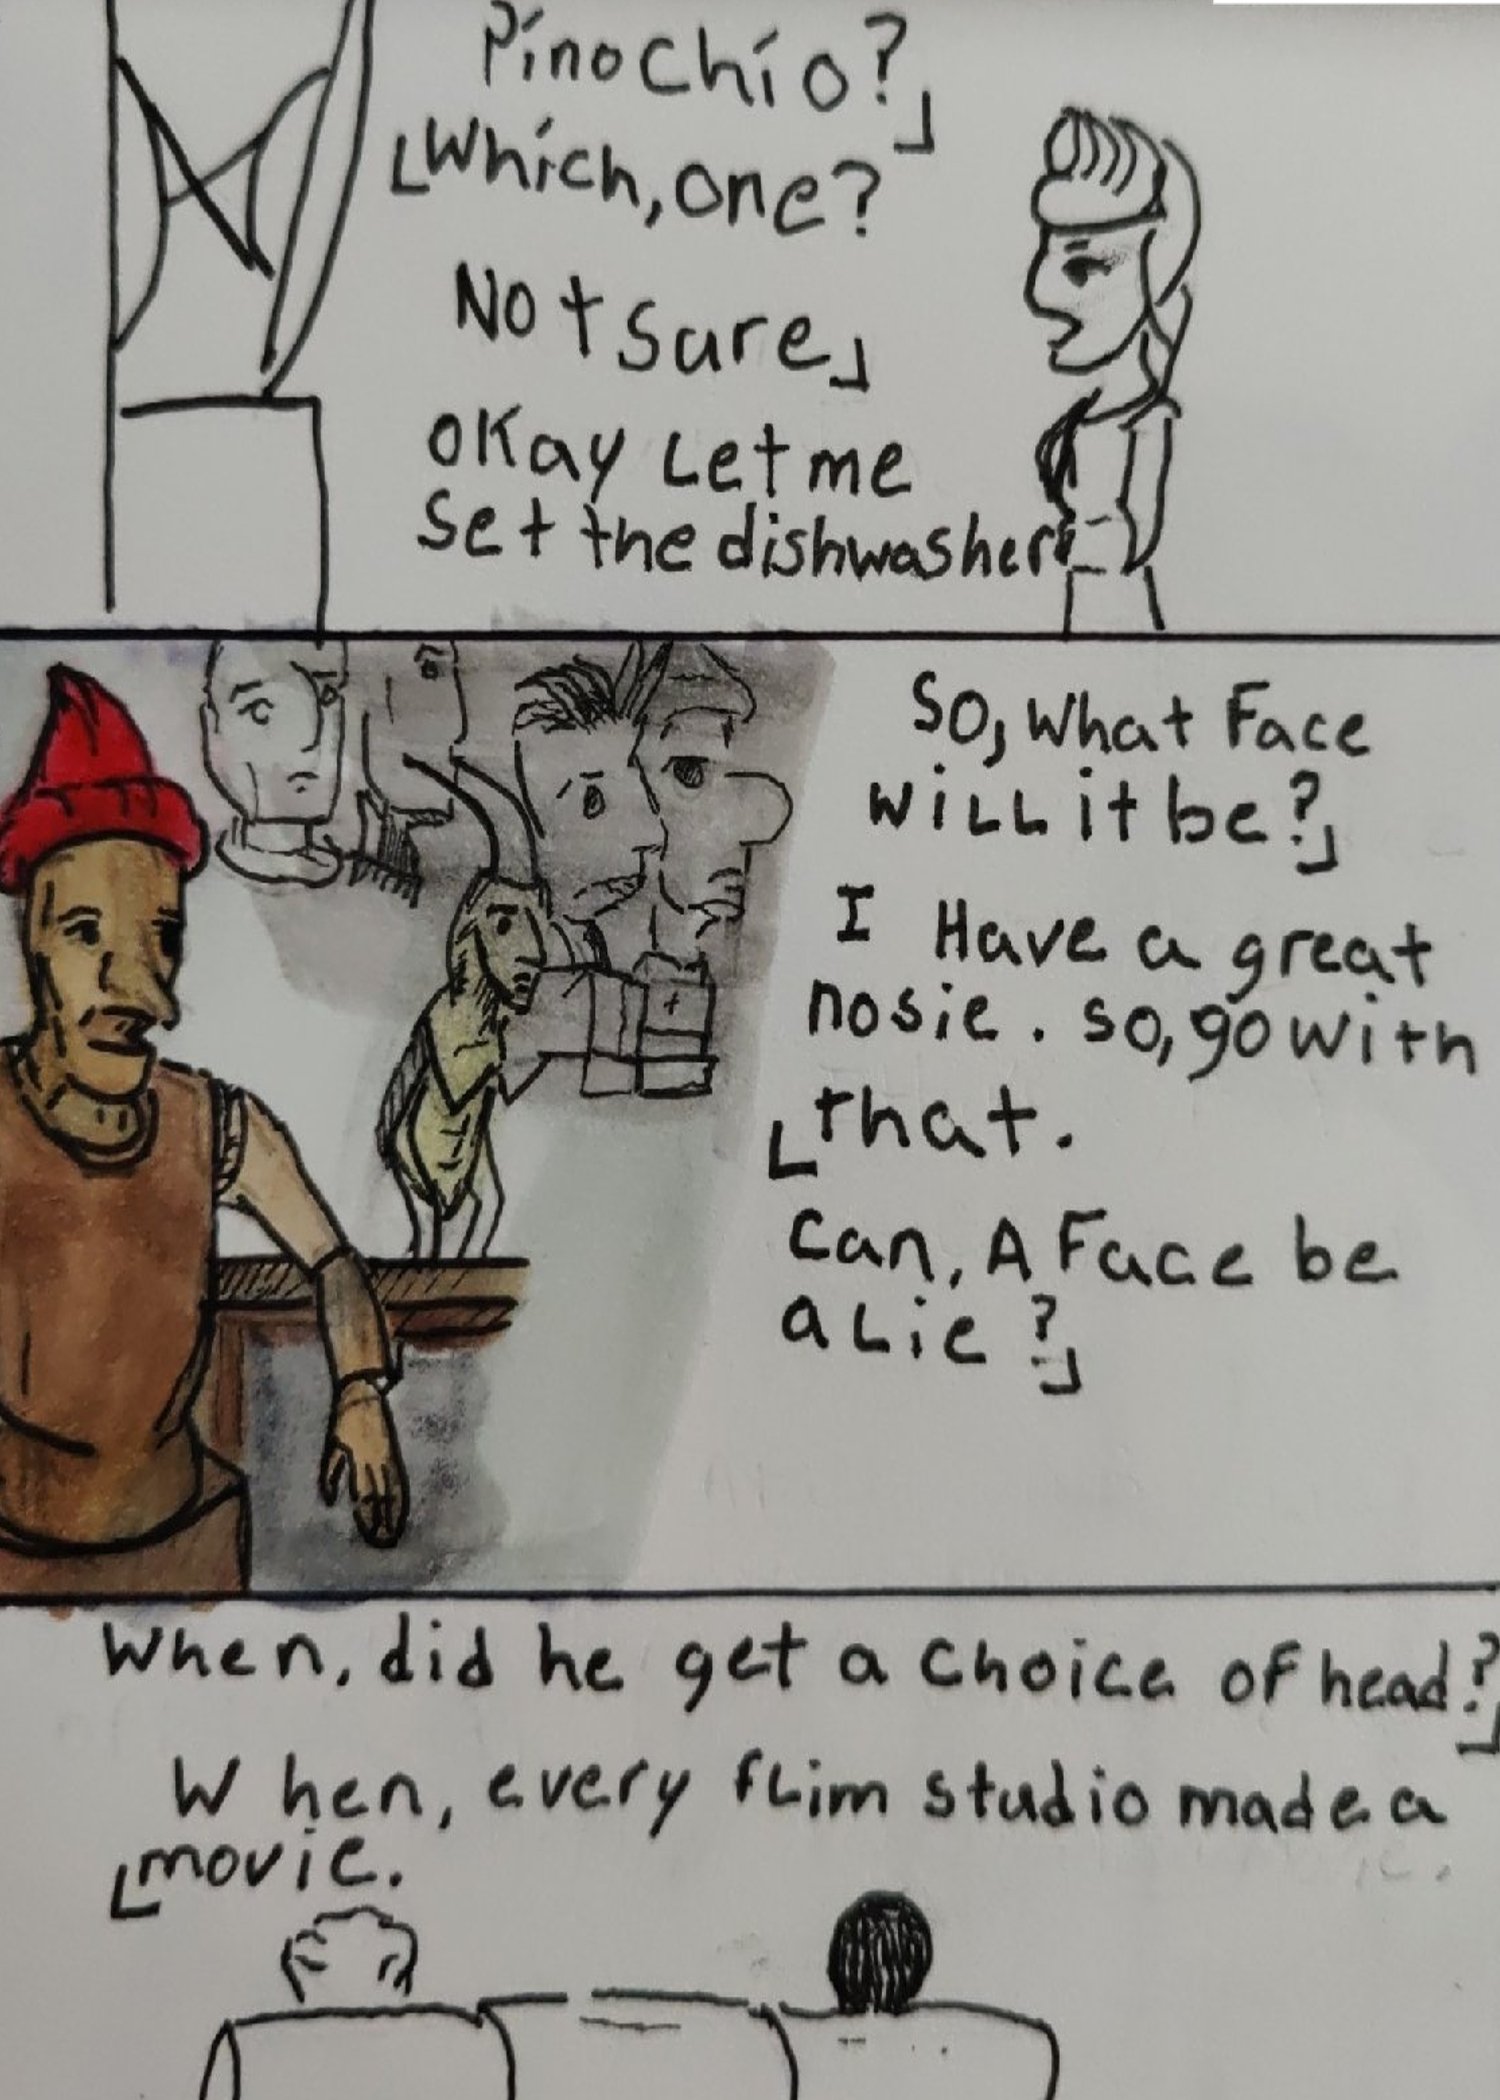 Pinochio?
Which, one?
Not sure
Okay Let me
set the dishwasher
So, what Face
will it be?
I Have a great
nosie. so, go with
that.
Can, A Face be
a Lie?
When, did he get a choice of head?
When, every flim studio made a
movie.